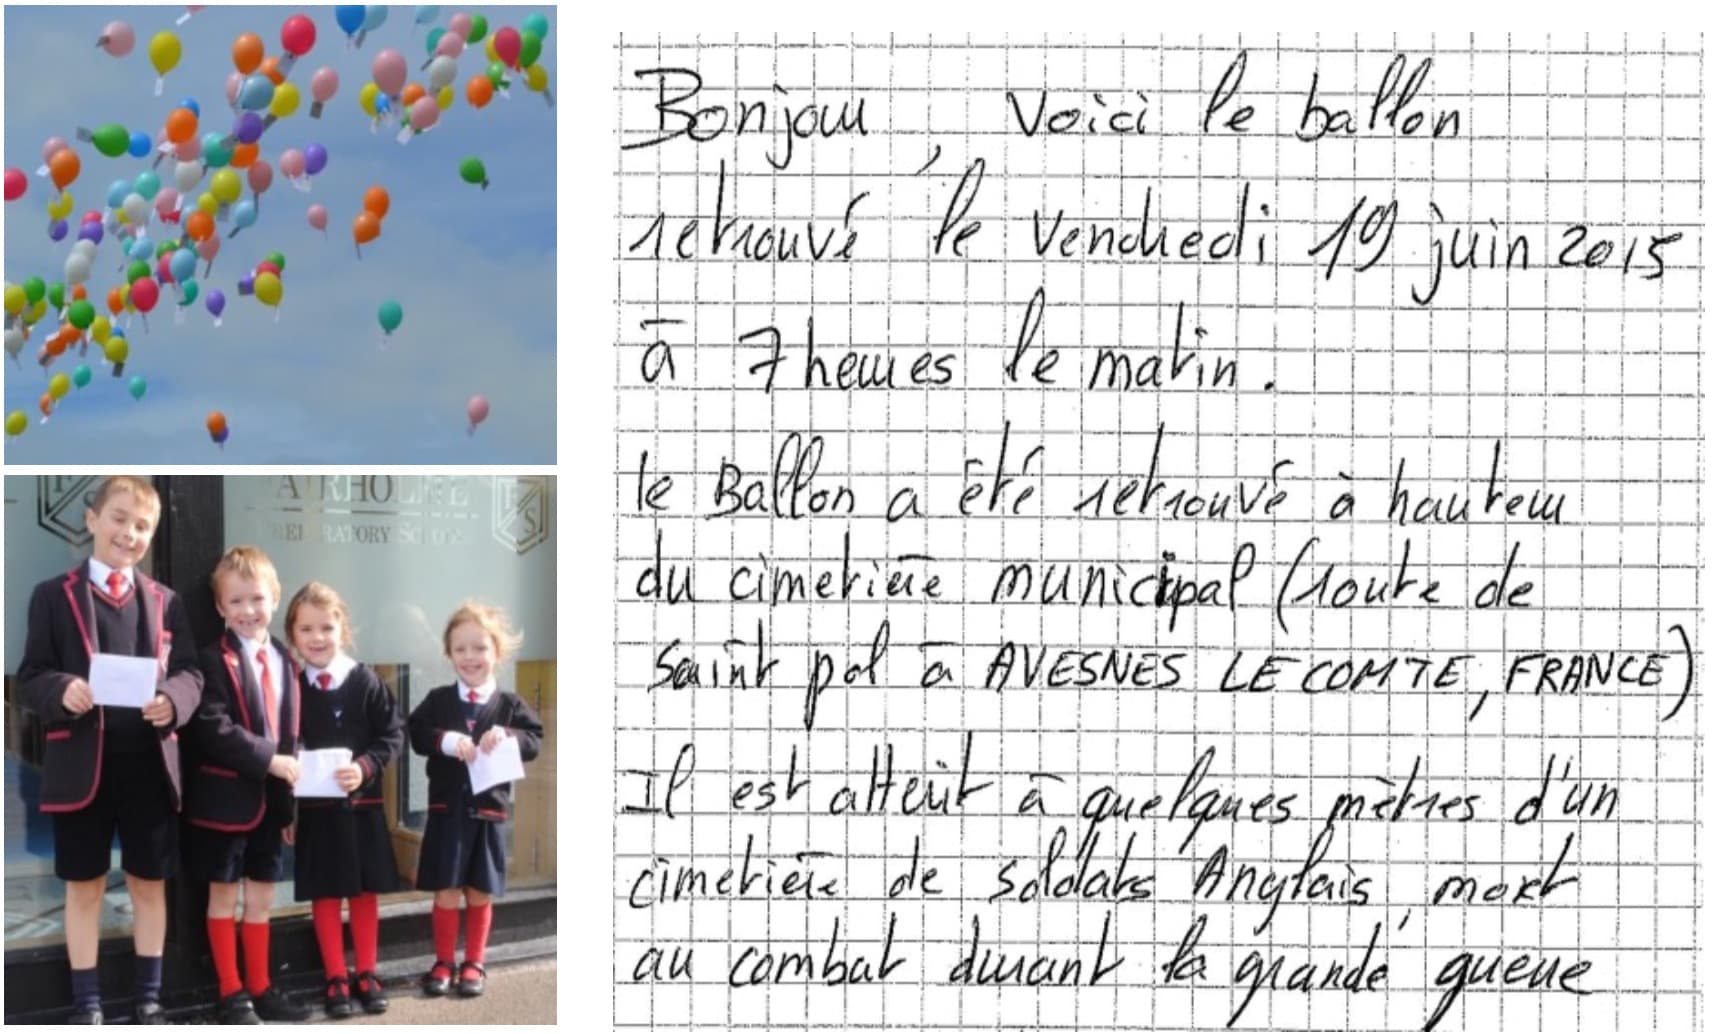 FAIRHOLME
PREPARATORY SCHOOL
F S
Bonjour, Voici le ballon
retrouvé le Vendredi 19 juin 2015
à 7 heures le matin.
le Ballon a été retrouvé à hauteur
du cimetière municipal (route de
saint pol à AVESNES LE COMTE, FRANCE)
Il est atterit à quelques mètres d'un
cimetière de soldats Anglais, mort
au combat durant la grande guerre